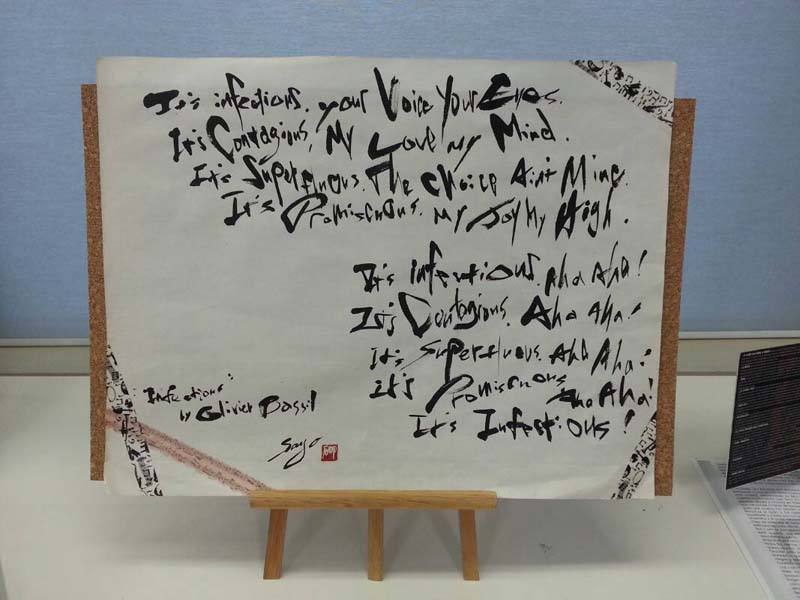 It's infectious. your Voice Your Eyes.
It's Contagious, My Love my Mind.
It's Superfluous. The choice Ain't Mine.
It's Promiscuous. My Joy My High.
It's infectious. Aha Aha!
It's Contagious. Aha Aha!
It's Superfluous. Aha Aha!
It's Promiscuous Aha Aha!
It's Infectious!
"Infectious"
by Olivier Bassil